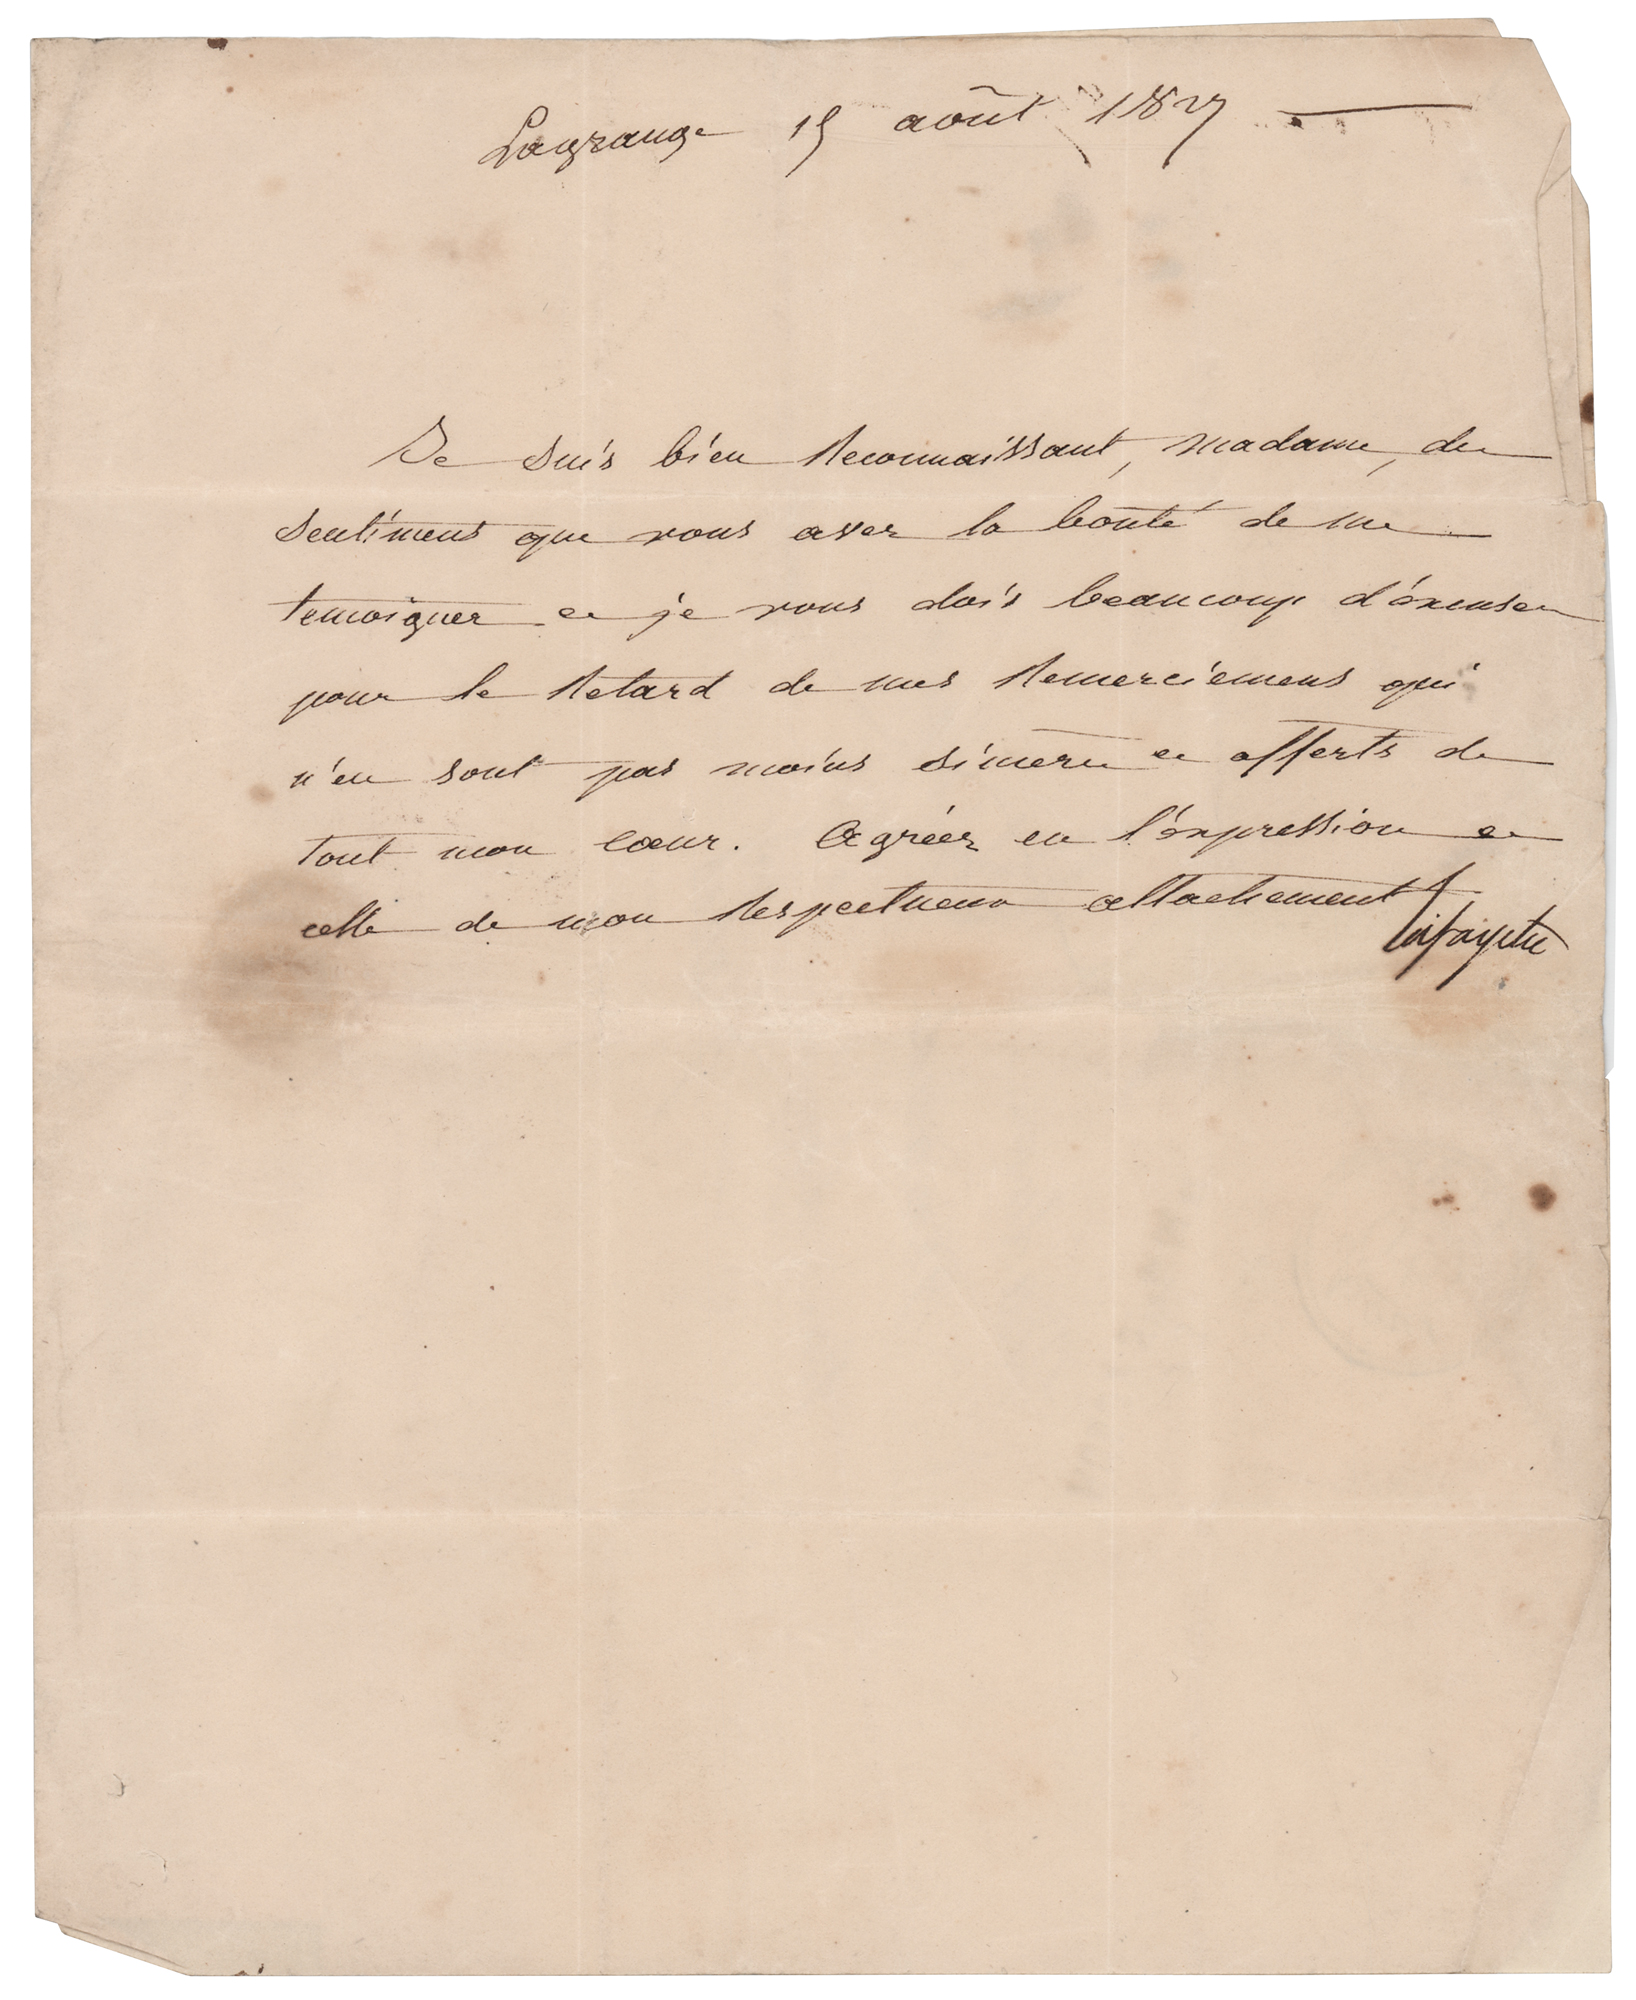 Lagrange 15 août 1827
Je suis bien Reconnaissant, madame, des
sentimens que vous avez la bonté de me
temoigner et je vous dois beaucoup d'excuses
pour le Retard de mes Remerciemens qui
n'en sont pas moins sinceres et offerts de
tout mon cœur. Agréez en l'expression et
celle de mon Respectueux attachement
Lafayette